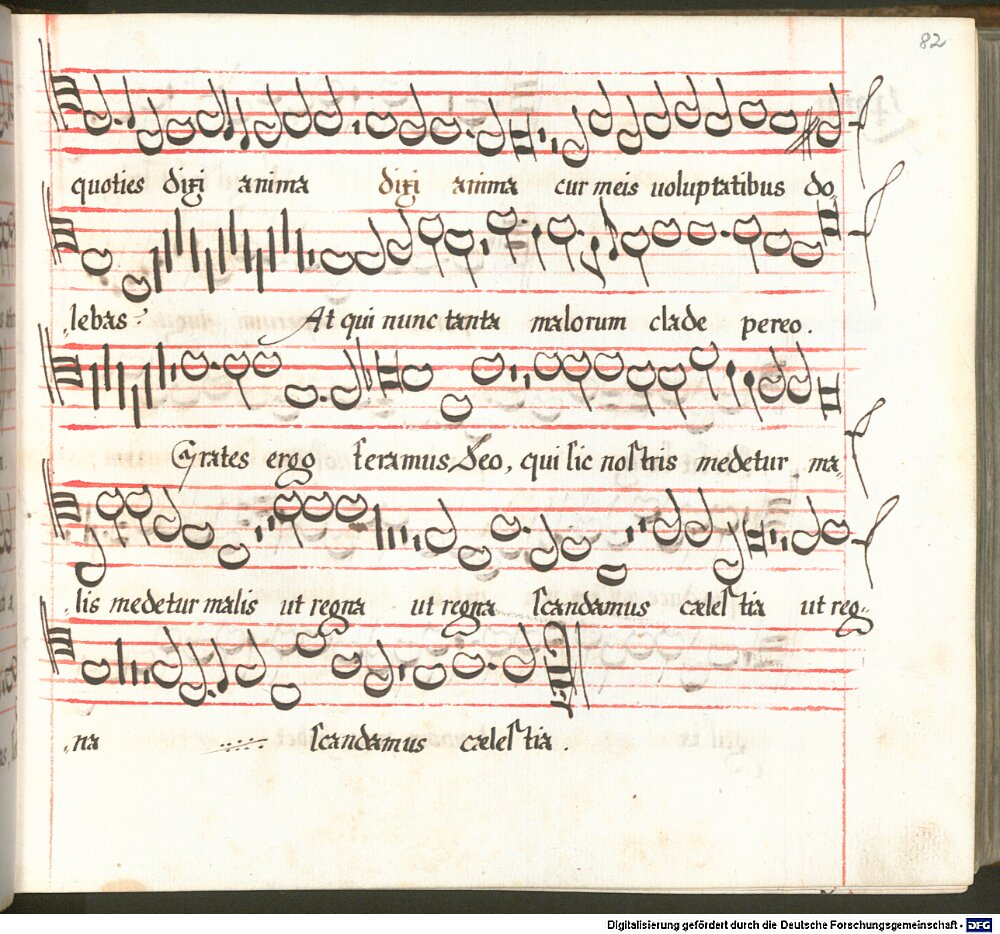 82
quoties dixi anima dixi anima cur meis uoluptatibus do,
,lebas? At qui nunc tanta malorum clade pereo.
Grates ergo feramus Deo, qui sic nostris medetur ma,
,lis medetur malis ut regna ut regna scandamus cælestia ut reg-
,na scandamus cælestia.
Digitalisierung gefördert durch die Deutsche Forschungsgemeinschaft - DFG